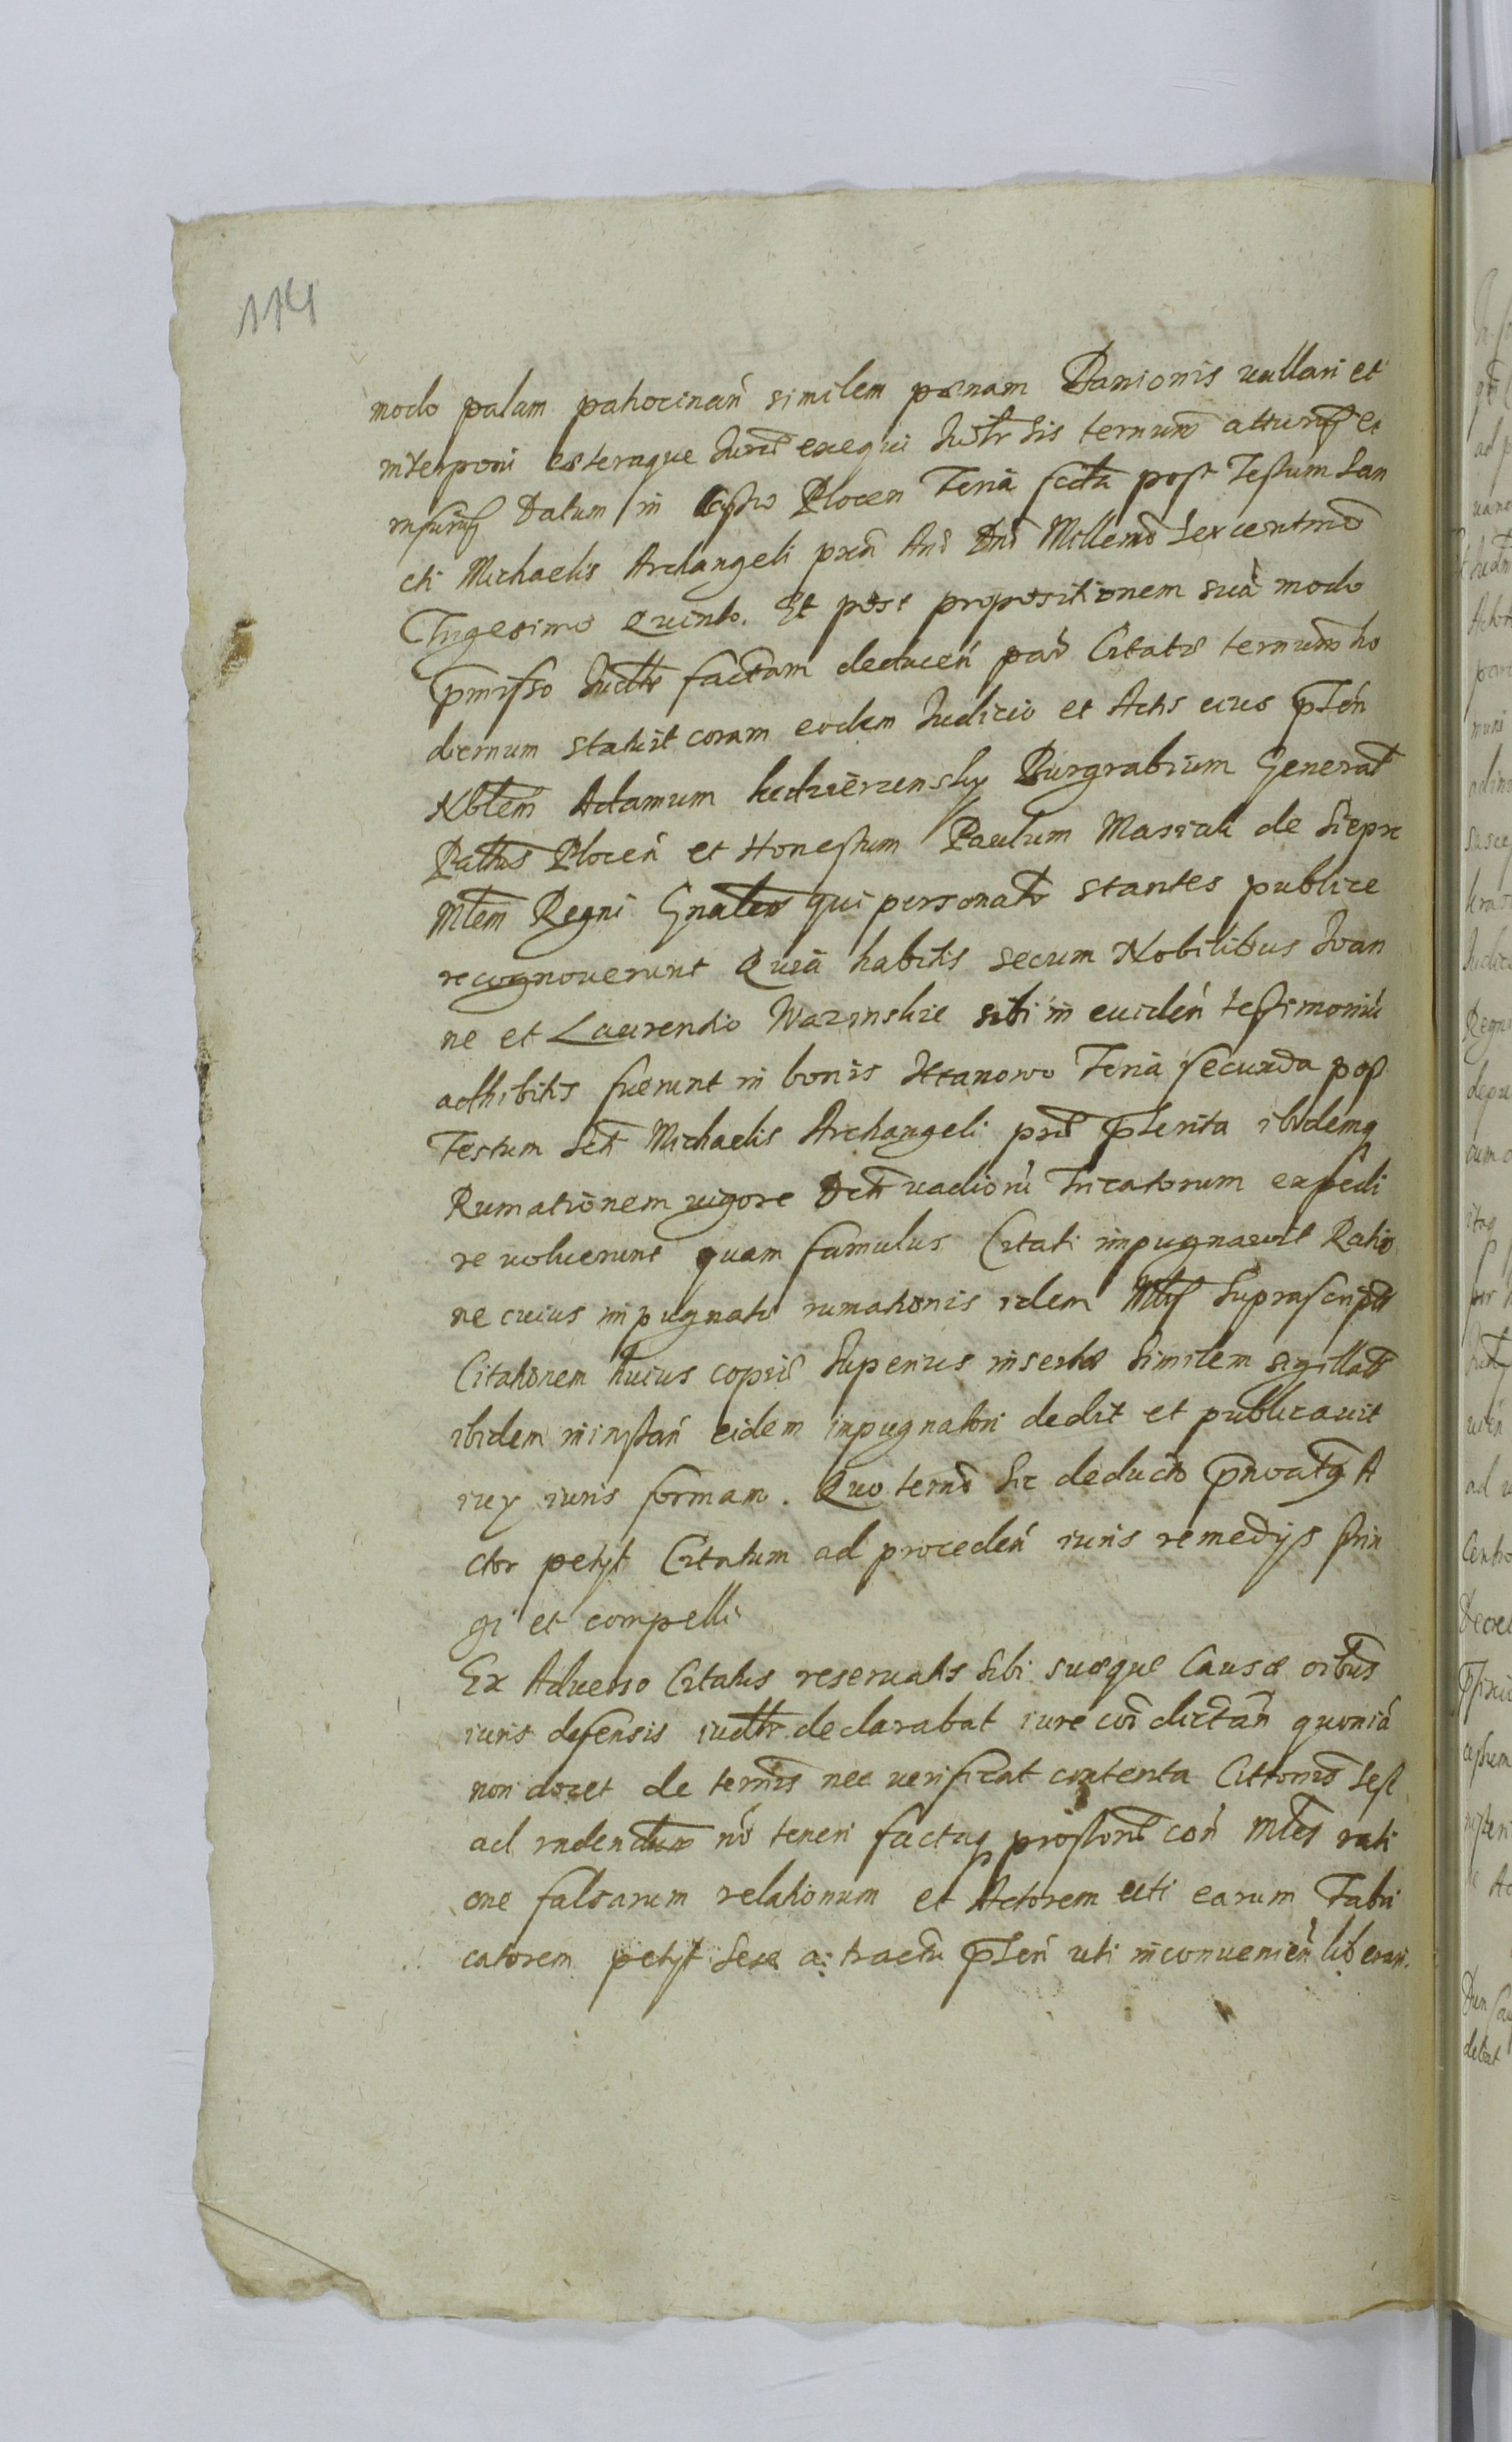 114
modo palam patrocinań similem pœnam Banionis vallari et
interponi cæteraque Iuris exequi Iudtr sis ternum atturus et
insurus Datum in Castro Plocen Feria scda post Festum San
cti Michaelis Archangeli pxa Ano Dni Millemo Sexcentmo
Trigesimo Quinto. Et post propositionem suā modo
pmisso Iudtr factam deduceń par Citata ternum ho
diernum statuit coram eodem Iudicio et Actis eius pnteń
Nbtem Adamum Burgrabium General
Pallus Ploceń et Honestum Paulum de Sieprc
Mtem Regni Gnalem qui personatr stantes publice
recognoverunt Quia habitis secum Nobilibus Ioan
ne et Laurentio sibi in evideń testimoniū
adhibitis fuerunt in bonis Feria secunda post
Festum Scti Michaelis Archangeli pxa pterita ibidemq
Rumationem vigore Dcti vadiorū Tricatorum expedi
re voluerunt quam famulus Citati impugnavit Ratio
ne cuius impugnatæ rumationis idem Mtis Suprascriptis
Citationem huius copiæ Superius insertæ Similem sigillatā
ibidem in instań eidem impugnatori dedit et publicavit
iux iuris formam. Quo terno Sic deducto pnoatq A
ctor petyt Citatum ad procedeń iuris remedys strin
gi et compelli
Ex Adverso Citatus reservatis sibi suæque Causæ oibus
iuris defensis iudtr declarabat iure con dictań quoniā
non docet de ternis nec verificat contenta Cittonis Sese
ad rndendum nō teneri factaq protone coń Mtes rati
one falsarum relationum et Actorem uti earum Fabri
catorem petyt Sese a tractu pnteń uti inconvenień liberari.